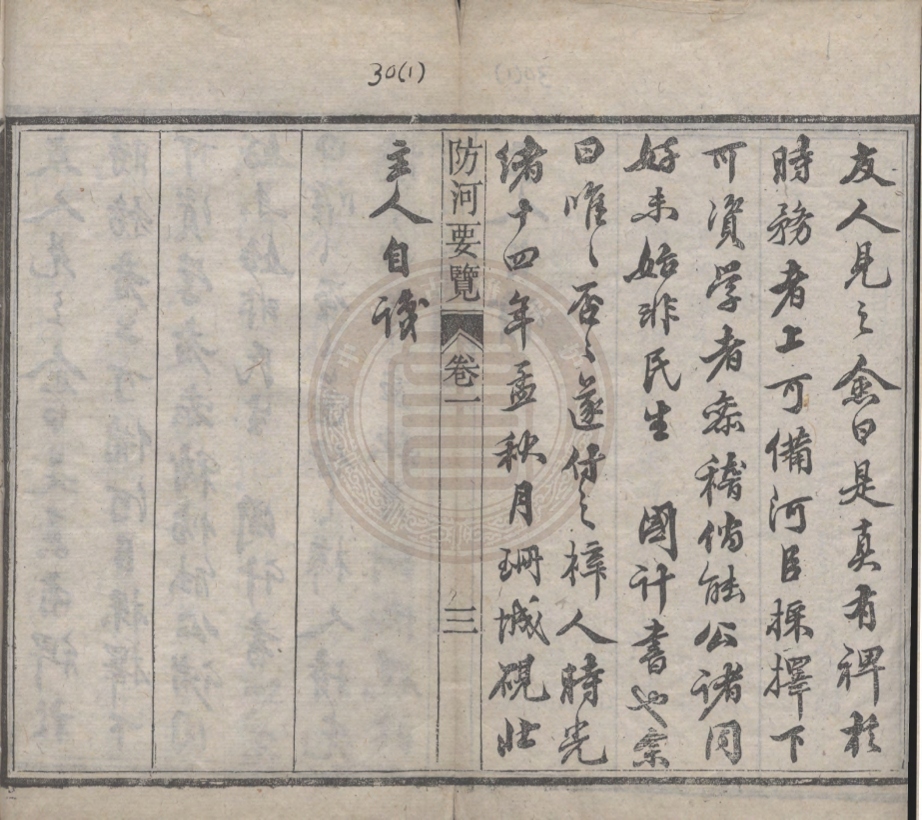 30(1)
友人見之僉曰是真有裨於
時務者上可備河臣採擇下
可資學者參稽倘能公諸同
好未始非民生　國計書也余
曰唯〻否〻遂付之梓人時光
緒十四年孟秋月珊城硯壯
防河要覽　卷一　三
主人自識